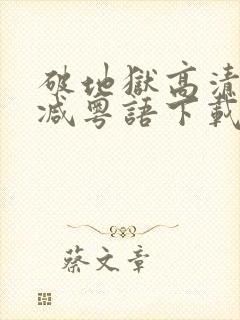 破地獄高清
減粵語下載
蔡文章